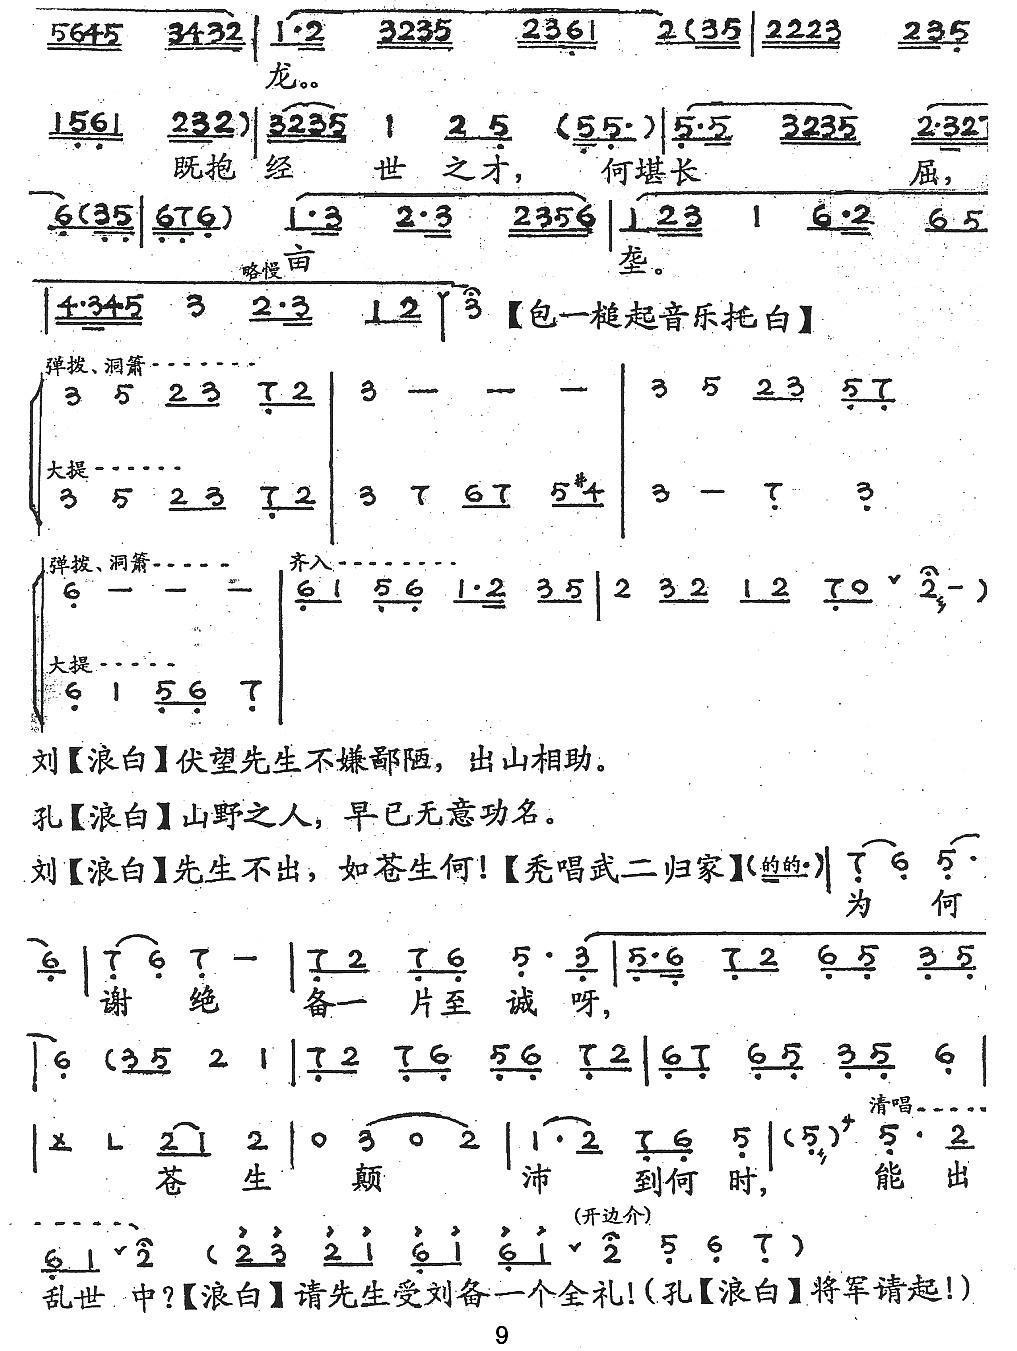 5645 3432 | 1·2 3235 2361 2(35 | 2223 235
龙。。
1561 232) | 3235 1 2 5 (55·) | 5·5 3235 2·327
既抱 经 世 之 才, 何堪长 屈,
6(35 | 676) 1·3 2·3 2356 | 123 1 6·2 65
略慢 亩 垄。
| 4·345 3 2·3 12 3 【包一槌起音乐托白】
弹拨、洞箫
3 5 23 72 | 3 — — — | 3 5 23 57
大提
3 5 23 72 | 3 7 67 5#4 | 3 — 7 3
弹拨、洞箫 齐入
6 — — — | 61 56 1·2 35 | 2 32 12 70 ˅ 2 -)
大提
6 1 56 7
刘【浪白】伏望先生不嫌鄙陋,出山相助。
孔【浪白】山野之人,早已无意功名。
刘【浪白】先生不出,如苍生何!【秃唱武二归家】(的的·) | 7 6 5·
为 何
6 | 7 6 7 — | 72 76 5· 3 | 5·6 72 65 35
谢 绝 备一 片至 诚 呀,
| 6 (35 2 1 | 72 76 56 72 | 67 65 35 6 |
清唱
| X L 21 2 | 0 3 0 2 | 1·2 76 5 | (5) 4 5· 2
苍 生 颠 沛 到何 时, 能 出
(开边介)
61 ˅ 2 (23 21 61 61 ˅ 2 5 6 7)
乱世 中?【浪白】请先生受刘备一个全礼!(孔【浪白】将军请起!)
9